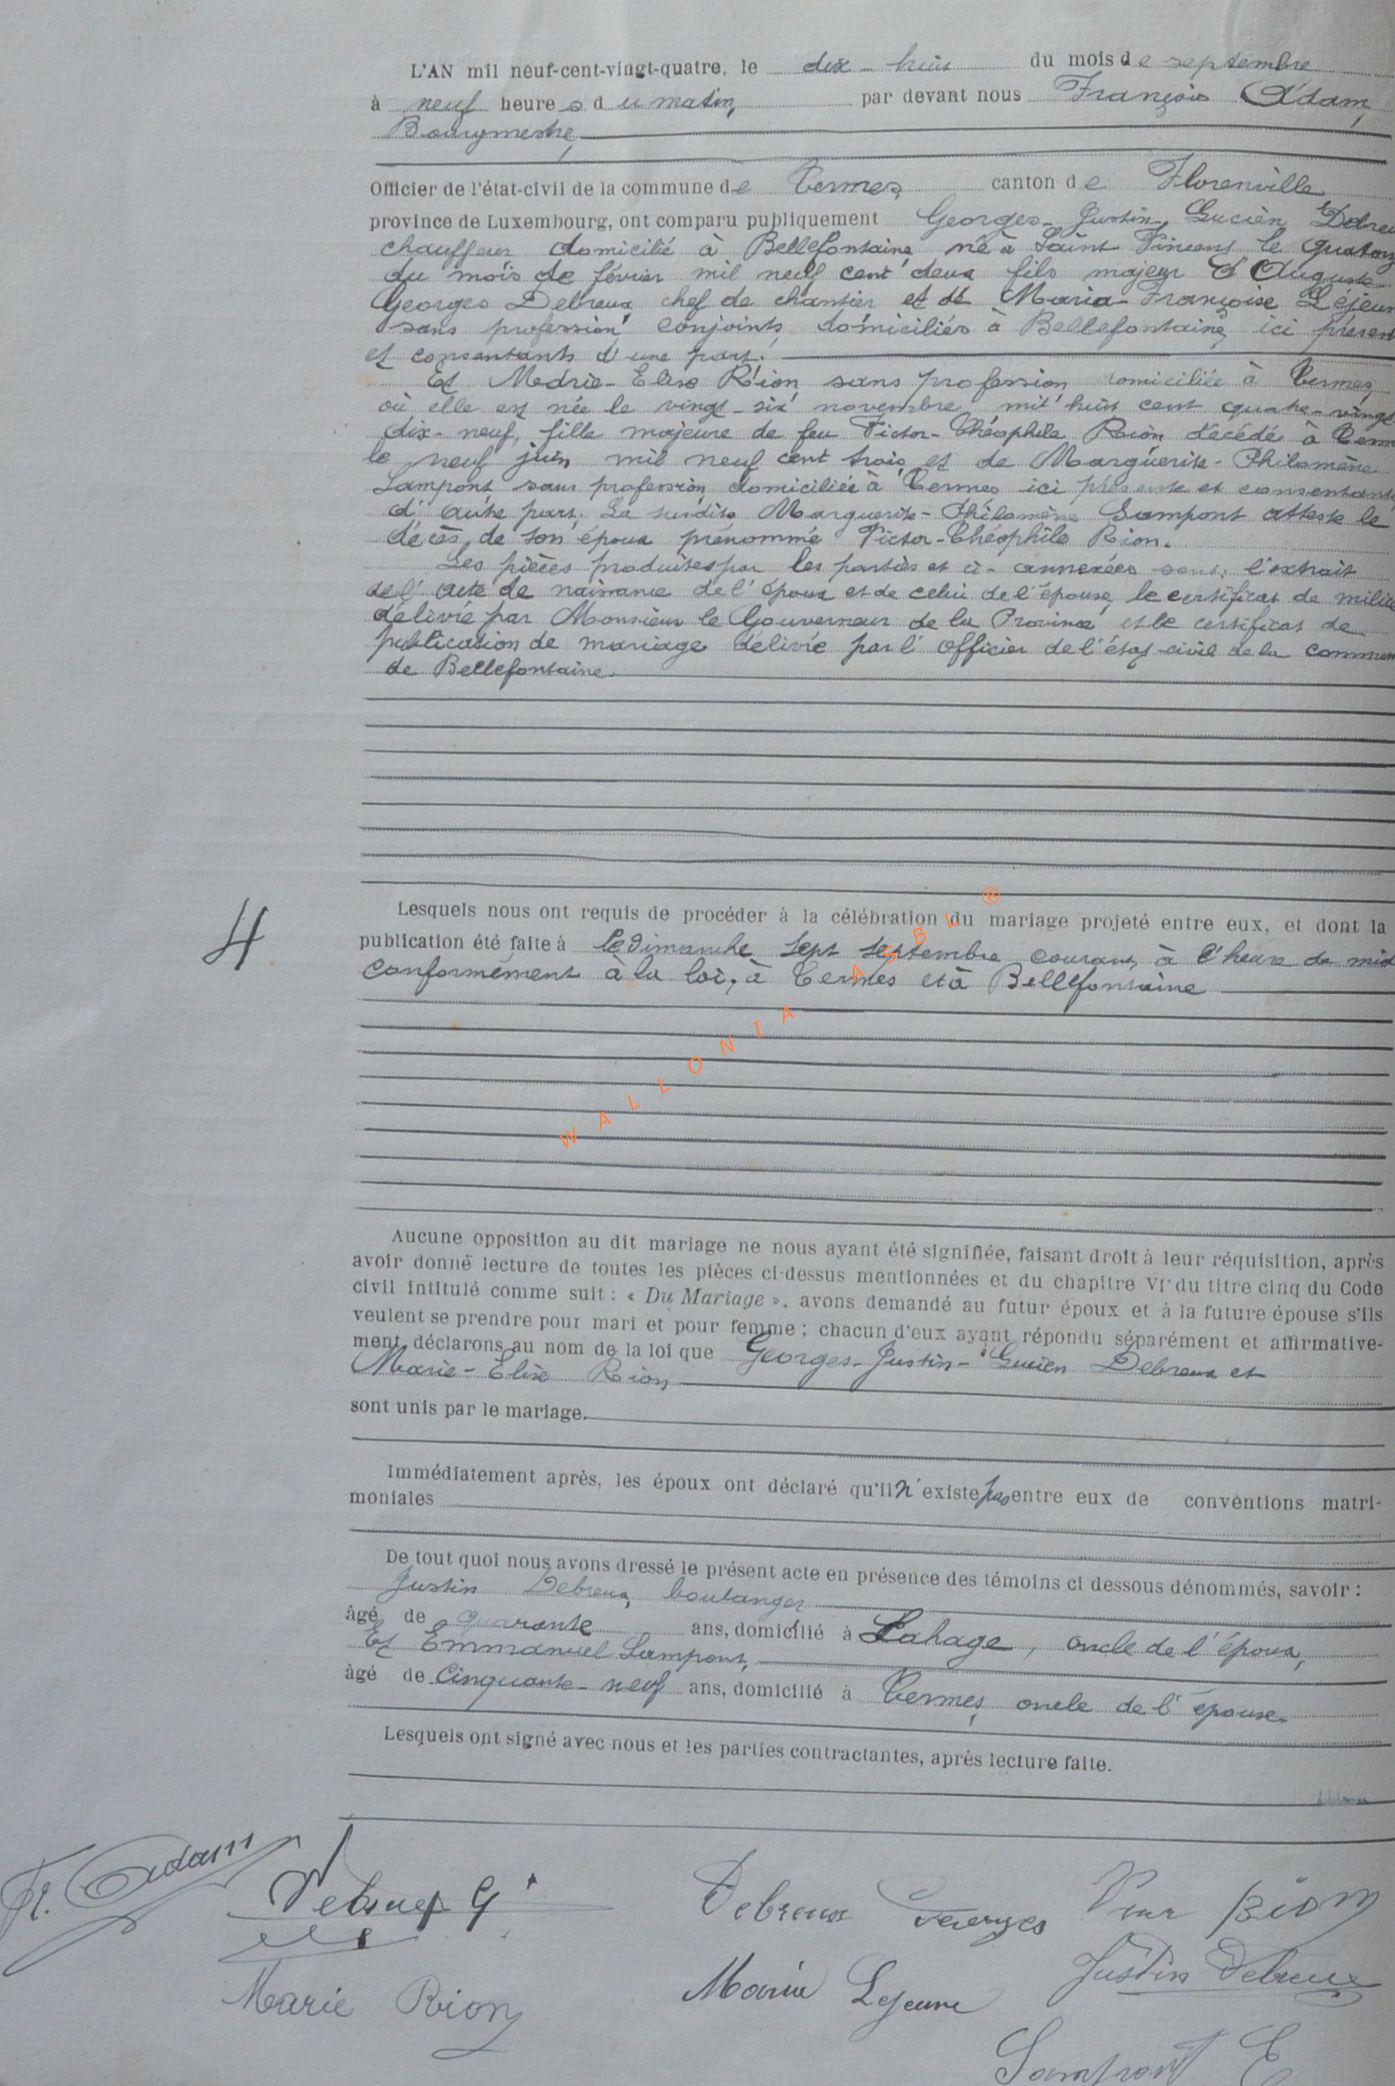 L'AN mil neuf-cent-vingt-quatre, le dix-huit du mois de septembre
à neuf heures du matin, par devant nous François Adam,
Bourgmestre,
Officier de l'état-civil de la commune de Termes, canton de Florenville
province de Luxembourg, ont comparu publiquement Georges-Justin-Lucien Debreu
chauffeur domicilié à Bellefontaine, né à Saint Vincent le quatorz
du mois de février mil neuf cent deux fils majeur d'Auguste
Georges Debreux, chef de chantier et de Maria-Françoise Lejeun
sans profession, conjoints, domiciliés à Bellefontaine, ici présen
et consentants d'une part.
Et Marie-Elise Rion, sans profession domiciliée à Termes,
où elle est née le vingt-six novembre mil huit cent quatre-vingt
dix-neuf, fille majeure de feu Victor-Théophile Rion décédé à Term
le neuf juin mil neuf cent trois et de Marguerite-Philomène
Lampont, sans profession, domiciliée à Termes ici présente et consentante
d'autre part. La susdite Marguerite-Philomène Lampont atteste le
décès de son époux prénommé Victor-Théophile Rion.
Les pièces produites par les parties et ci-annexées sont: l'extrait
de l'acte de naissance de l'époux et de celui de l'épouse, le certificat de milice
délivré par Monsieur le Gouverneur de la Province et le certificat de
publication de mariage délivré par l'officier de l'état-civil de la commun
de Bellefontaine.
4
Lesquels nous ont requis de procéder à la célébration du mariage projeté entre eux, et dont la
publication été faite à le dimanche sept septembre courant, à l'heure de mid
conformément à la loi, à Termes et à Bellefontaine
WALLONIA ASBL ®
Aucune opposition au dit mariage ne nous ayant été signifiée, faisant droit à leur réquisition, après
avoir donné lecture de toutes les pièces ci-dessus mentionnées et du chapitre VI du titre cinq du Code
civil intitulé comme suit : « Du Mariage », avons demandé au futur époux et à la future épouse s'ils
veulent se prendre pour mari et pour femme ; chacun d'eux ayant répondu séparément et affirmative-
ment, déclarons au nom de la loi que Georges-Justin-Lucien Debreux et
Marie-Elise Rion,
sont unis par le mariage.
Immédiatement après, les époux ont déclaré qu'il n'existe pas entre eux de conventions matri-
moniales
De tout quoi nous avons dressé le présent acte en présence des témoins ci dessous dénommés, savoir :
Justin Debreux, boulanger
âgé de quarante ans, domicilié à Lahage, oncle de l'époux,
Et Emmanuel Lampont,
âgé de Cinquante-neuf ans, domicilié à Termes, oncle de l'épouse.
Lesquels ont signé avec nous et les parties contractantes, après lecture faite.
Fr. Adam Debreux G Debreux Georges Rion
Marie Rion Maria Lejeune Justin Debreux
Lampont E